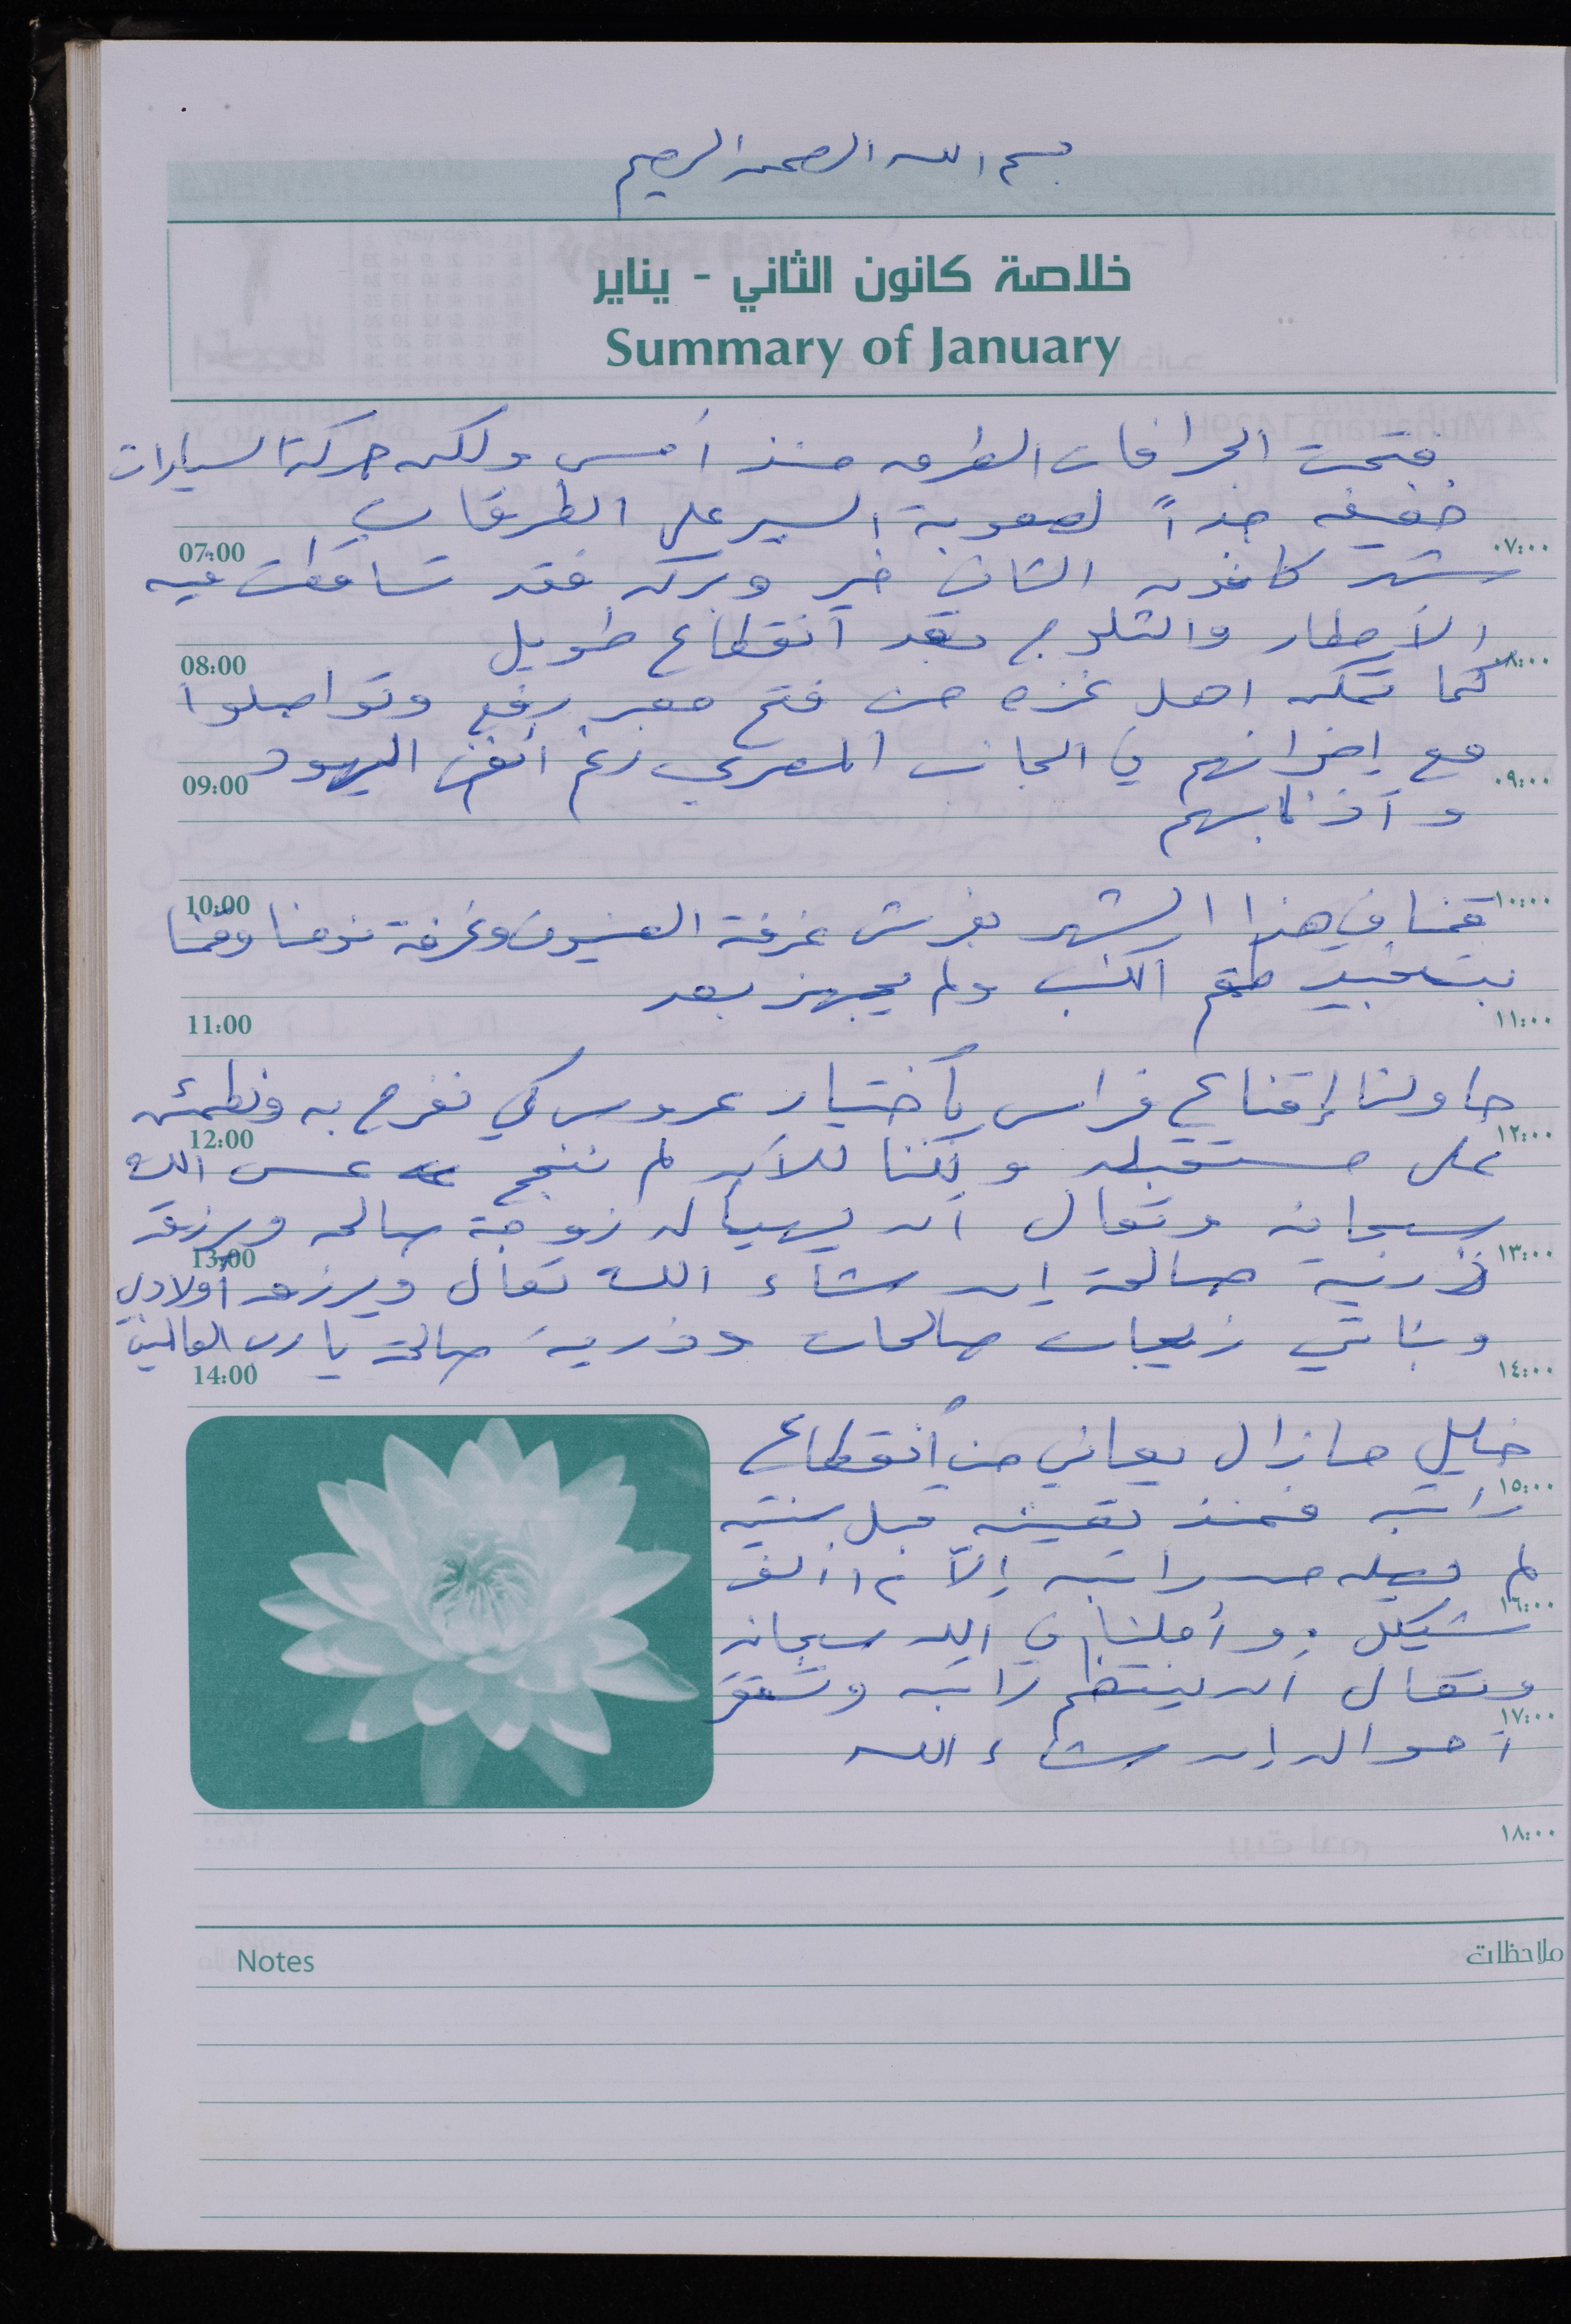 بسم الله الرحمن الرحيم
خلاصة كانون الثاني - يناير
Summary of January
فتحت الجرافات الطرق منذ أمس ولكن حركة السيارات
خفيفه جداً لصعوبة السير على الطرقات
07:00 ٠٧:٠٠
شهر كانون الثاني خير وبركه فقد تساقطت فيه
الأمطار والثلوج بعد انقطاع طويل
08:00 ٠٨:٠٠
كما تمكن اهل غزه من فتح معبر رفح وتواصلوا
مع إخوانهم في الجانب المصري رغم أنف اليهود
09:00 ٠٩:٠٠
وأذنابهم
10:00 ١٠:٠٠
قمنا في هذا الشهر بفرش غرفة الضيوف وغرفة نومنا وقمنا
بتنجيد طقم الكنب ولم يجهز بعد
11:00 ١١:٠٠
حاولنا إقناع فراس بأختيار عروس كي نفرح به ونطمئن
12:00 ١٢:٠٠
على مستقبله ولكننا للآن لم ننجح عسى الله
سبحانه وتعالى أن يهيأ له زوجة صالحه ويرزقه
13:00 ١٣:٠٠
ذرية صالحة إن شاء الله تعالى ويرزق أولادي
وبناتي زيجات صالحات وذرية صالحة يا رب العالمين
14:00 ١٤:٠٠
خليل مازال يعاني من أنقطاع
١٥:٠٠
راتبه فمنذ تعينه قبل سنتين
لم يصله من راتبه إلاّ ١٢ ألف
١٦:٠٠
شيكل . وأملنا في الله سبحانه
وتعالى أن ينتظم راتبه وتستقر
١٧:٠٠
أحواله إن شاء الله
١٨:٠٠
Notes ملاحظات